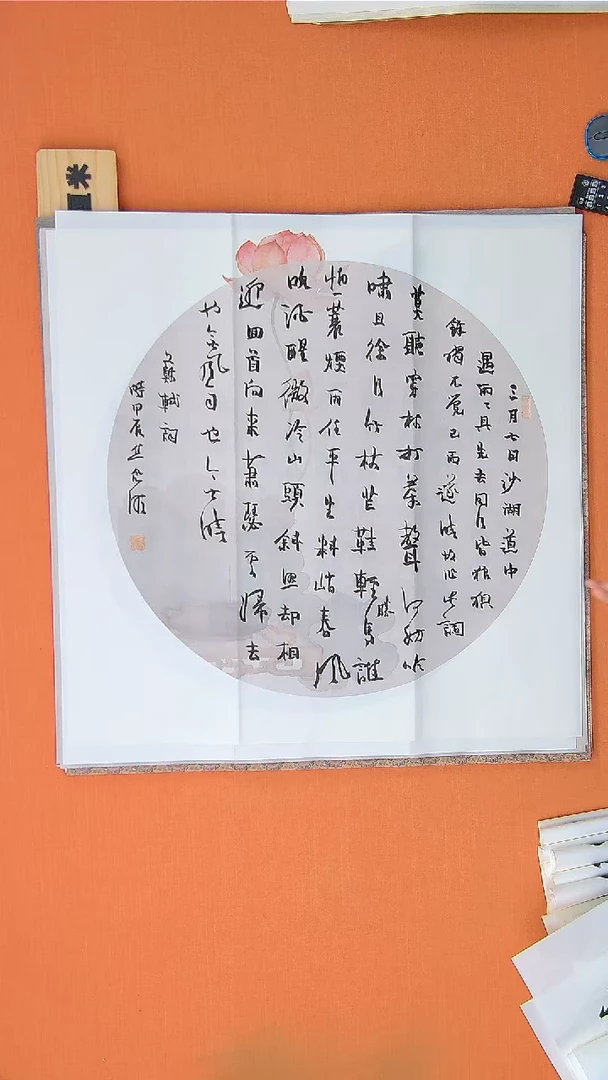 三月七日沙湖道中
遇雨雨具先去同行皆狼狽
余獨不覺已而遂晴故作此詞
莫聽穿林打葉聲何妨吟
嘯且徐行竹杖芒鞋輕勝馬誰
怕一蓑煙雨任平生料峭春風
吹酒醒微冷山頭斜照却相
迎回首向來蕭瑟處歸去
也無風雨也無晴
蘇軾詞
時甲辰
厘米